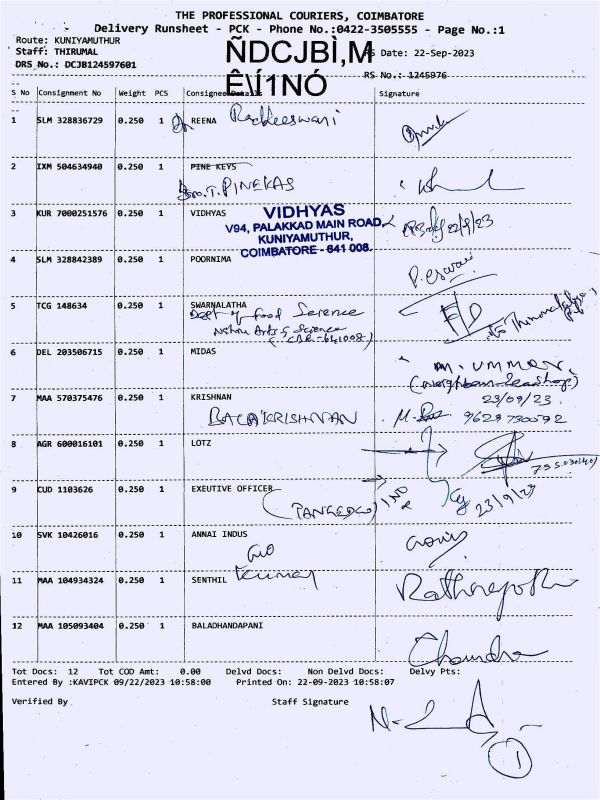 THE PROFESSIONAL COURIERS, COIMBATORE
Delivery Runsheet - PCK - Phone No.:0422-3505555 - Page No.:1
Route: KUNIYAMUTHUR
Staff: THIRUMAL
DRS No.: DCJB124597601
ÑDCJBÌ,M
Ê\Í1NÓ
RS Date: 22-Sep-2023
RS No.: 1245976
S No Consignment No Weight PCS Consignee Details Signature
1 SLM 328836729 0.250 1 REENA
2 IXM 504634940 0.250 1 PINE KEYS
T. PINEKAS
3 KUR 7000251576 0.250 1 VIDHYAS 22/9/23
VIDHYAS
V94, PALAKKAD MAIN ROAD,
KUNIYAMUTHUR,
COIMBATORE - 641 008.
4 SLM 328842389 0.250 1 POORNIMA
P. Eswari
5 TCG 148634 0.250 1 SWARNALATHA
Dept of Food Science
Arts & Science
6 DEL 203506715 0.250 1 MIDAS
M. UMMAR
7 MAA 570375476 0.250 1 KRISHNAN 23/09/23
BALAKRISHNAN 9629730592
8 AGR 600016101 0.250 1 LOTZ
9 CUD 1103626 0.250 1 EXEUTIVE OFFICER 23/9/23
(TANGEDCO)
10 SVK 10426016 0.250 1 ANNAI INDUS
11 MAA 104934324 0.250 1 SENTHIL Kumar
12 MAA 105093404 0.250 1 BALADHANDAPANI
Chandra
Tot Docs: 12 Tot COD Amt: 0.00 Delvd Docs: Non Delvd Docs: Delvy Pts:
Entered By :KAVIPCK 09/22/2023 10:58:00 Printed On: 22-09-2023 10:58:07
Verified By Staff Signature
1